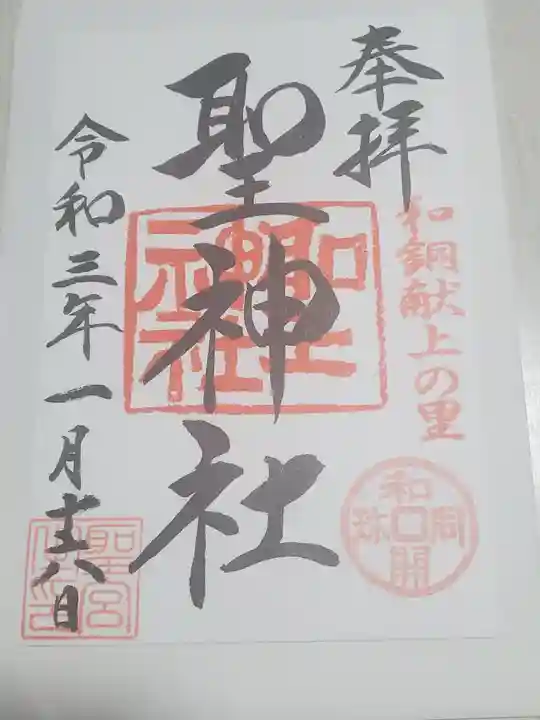 奉拝
和銅献上の里
和同開珎
聖神社
聖神社
令和三年一月十八日